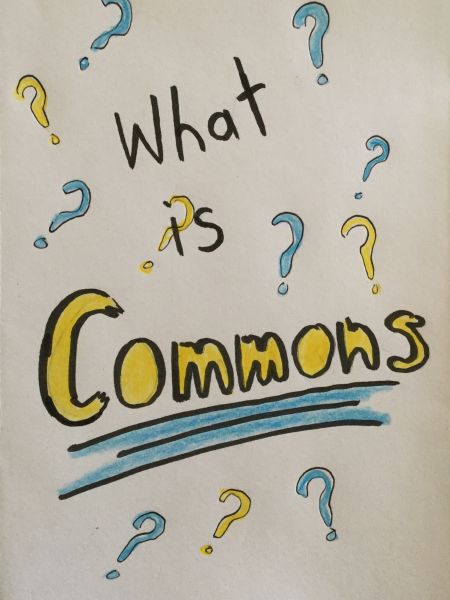 What
is
Commons